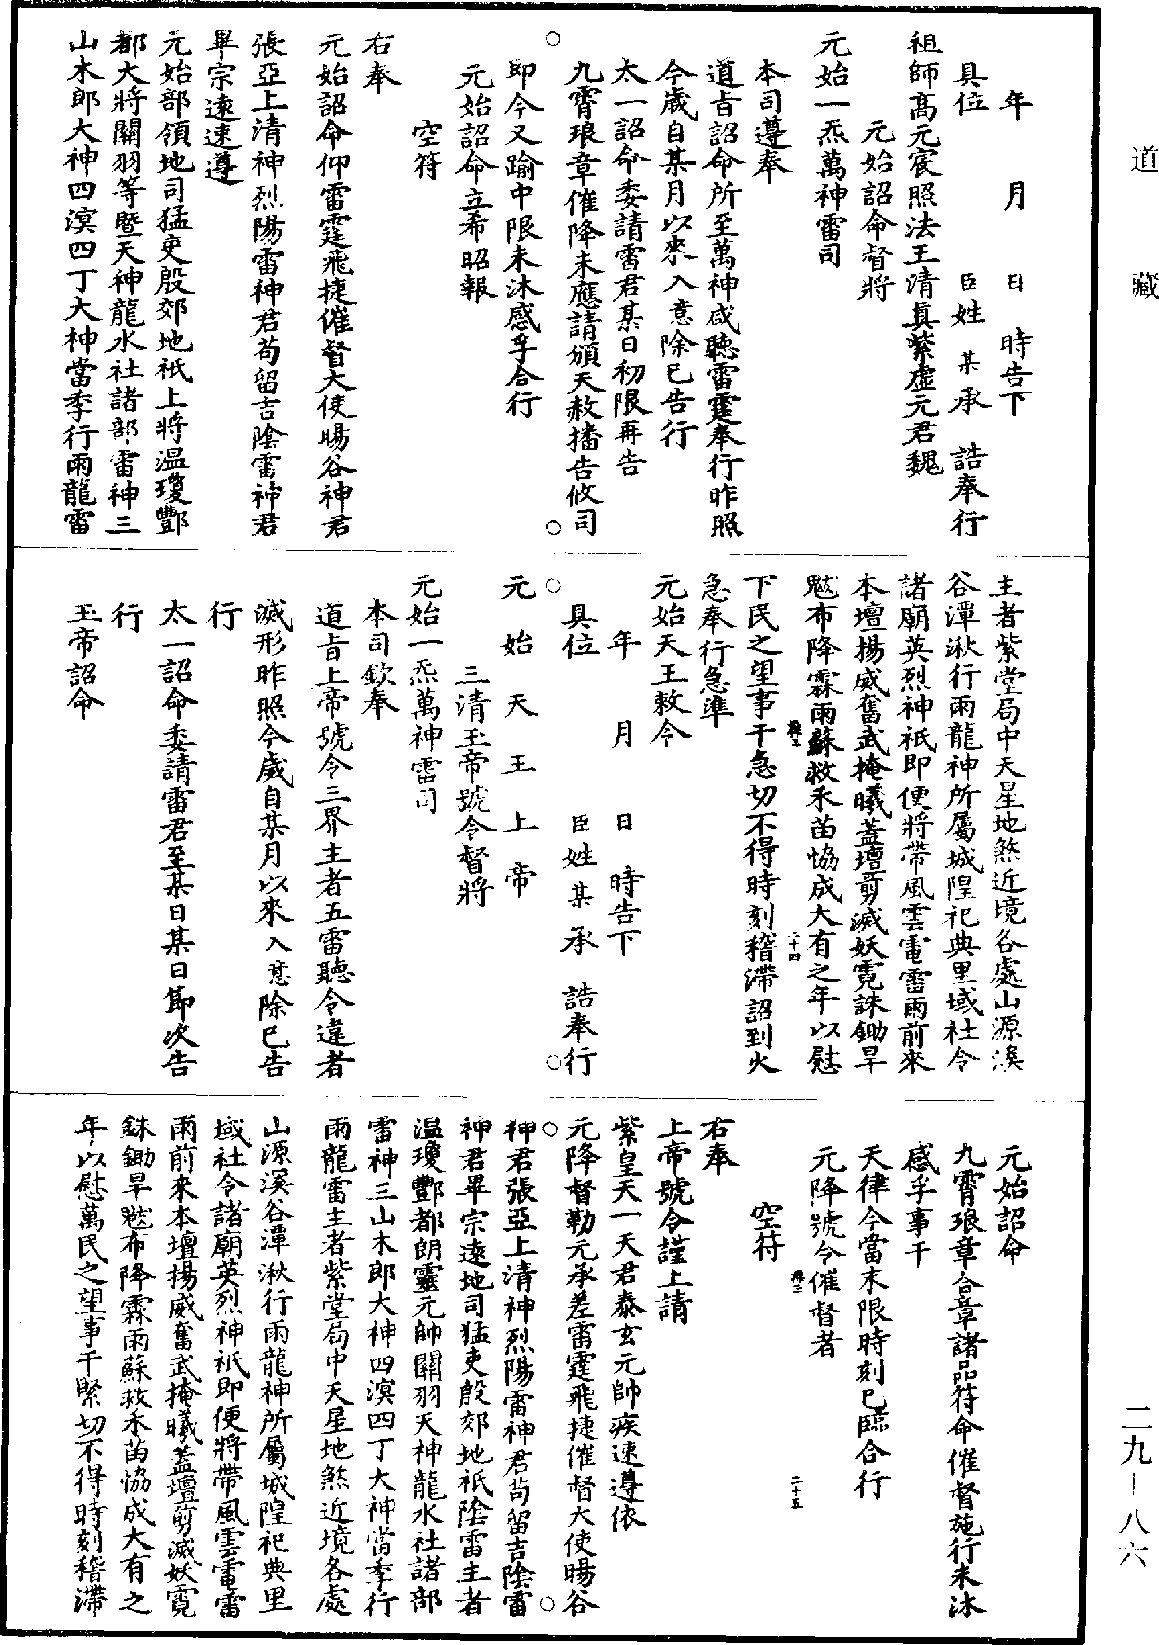 道藏
年　月　日　時告下
具位　臣姓某承　誥奉行
祖師高元宸照法王清真紫虛元君魏
元始詔命督將
元始一炁萬神雷司
本司遵奉
道旨詔命所至萬神咸聽雷霆奉行昨照
今歲自某月以來入意除已告行
太一詔命委請雷君某日初限再告
九霄琅章催降未應請頒天赦播告攸司
即今又踰中限未沐感孚合行
元始詔命立希昭報
空符
右奉
元始詔命仰雷霆飛捷催督大使暘谷神君
張亞上清神烈陽雷神君苟留吉陰雷神君
畢宗遠速遵
元始部領地司猛吏殷郊地祇上將溫瓊酆
都大將關羽等暨天神龍水社諸部雷神三
山木郎大神四溟四丁大神當季行雨龍雷
主者紫堂局中天星地煞近境各處山源溪
谷潭湫行雨龍神所屬城隍祀典里域社令
諸廟英烈神祇即便將帶風雲電雷雨前來
本壇揚威奮武掩曦蓋壇剪滅妖霓誅鋤旱
魃布降霖雨蘇救禾苗恊成大有之年以慰
二十四
下民之望事干急切不得時刻稽滯詔到火
急奉行急準
元始天王敕令
年　月　日　時告下
具位　臣姓某承　誥奉行
元始天王上帝
三清玉帝號令督將
元始一炁萬神雷司
本司欽奉
道旨上帝號令三界主者五雷聽令違者
滅形昨照今歲自某月以來入意除已告
行
太一詔命委請雷君至某日某日節次告
行
玉帝詔命
元始詔命
九霄琅章合章諸品符命催督施行未沐
感孚事干
天律今當末限時刻已臨合行
元降號令催督者
二十五
空符
右奉
上帝號令謹上請
紫皇天一天君泰玄元帥疾速遵依
元降督勒元承差雷霆飛捷催督大使暘谷
神君張亞上清神烈陽雷神君苟留吉陰雷
神君畢宗遠地司猛吏殷郊地祇陰雷主者
溫瓊酆都朗靈元帥關羽天神龍水社諸部
雷神三山木郎大神四溟四丁大神當季行
雨龍雷主者紫堂局中天星地煞近境各處
山源溪谷潭湫行雨龍神所屬城隍祀典里
域社令諸廟英烈神祇即便將帶風雲電雷
雨前來本壇揚威奮武掩曦蓋壇剪滅妖霓
銖鋤旱魃布降霖雨蘇救禾苗恊成大有之
年以慰萬民之望事干緊切不得時刻稽滯
二九—八六